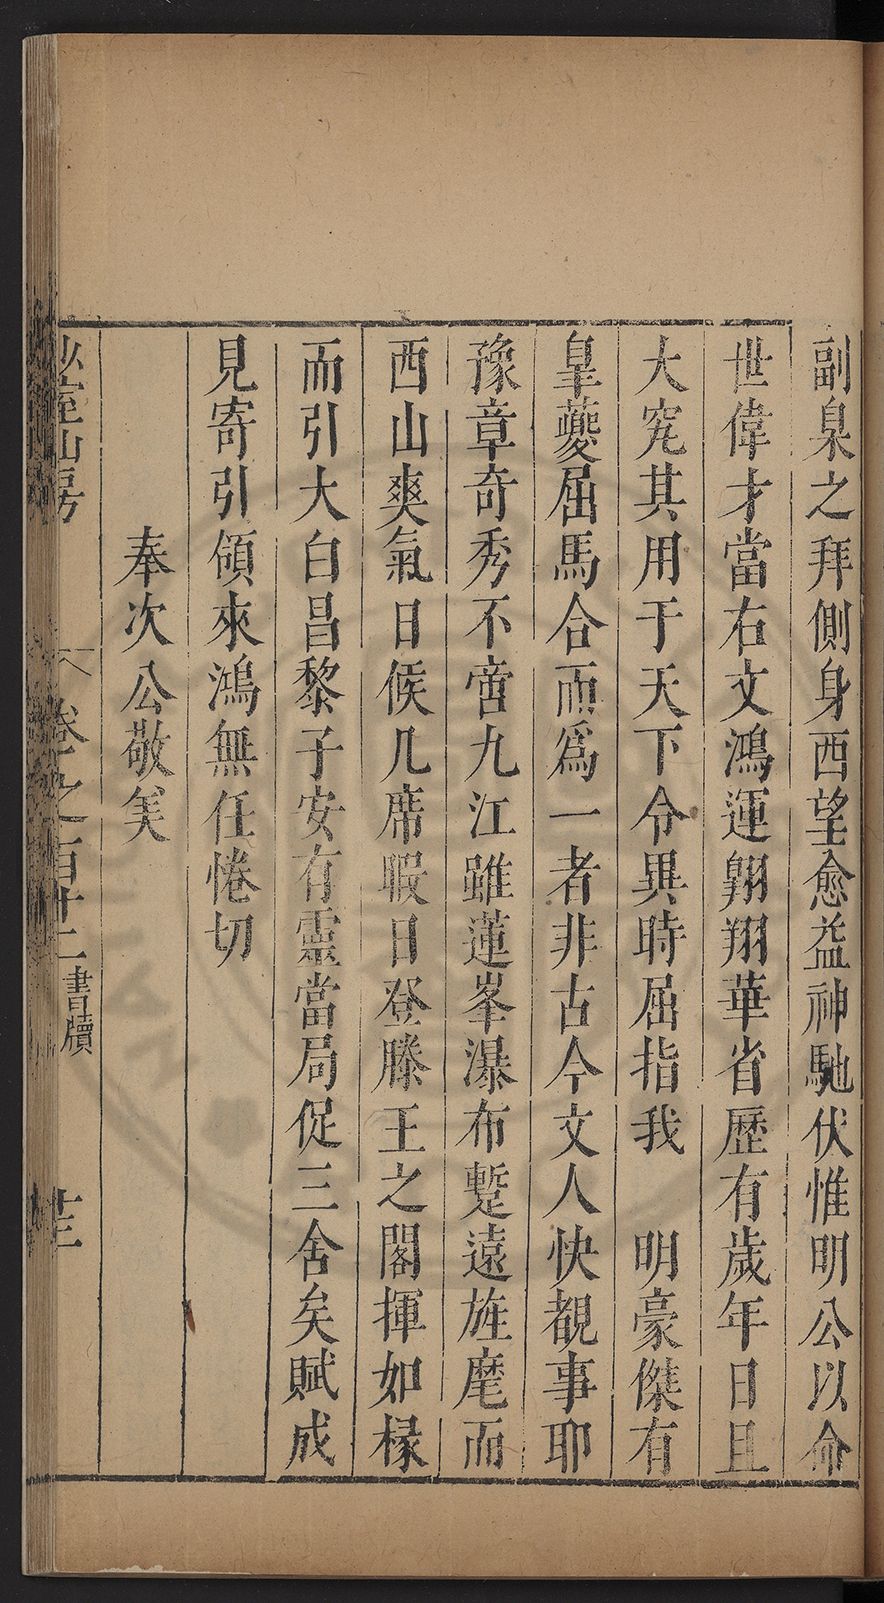 副臬之拜側身西望愈益神馳伏惟明公以命
世偉才當右文鴻運翺翔華省歷有歲年日且
大究其用于天下令異時屈指我　明豪傑有
皐夔屈馬合而爲一者非古今文人快覩事耶
豫章奇秀不啻九江雖蓮峯瀑布蹔遠旌麾而
西山爽氣日候几席暇日登滕王之閣揮如椽
而引大白昌黎子安有靈當局促三舍矣賦成
見寄引領來鴻無任惓切
奉次公敬美
少室山房
卷之百十二書牘